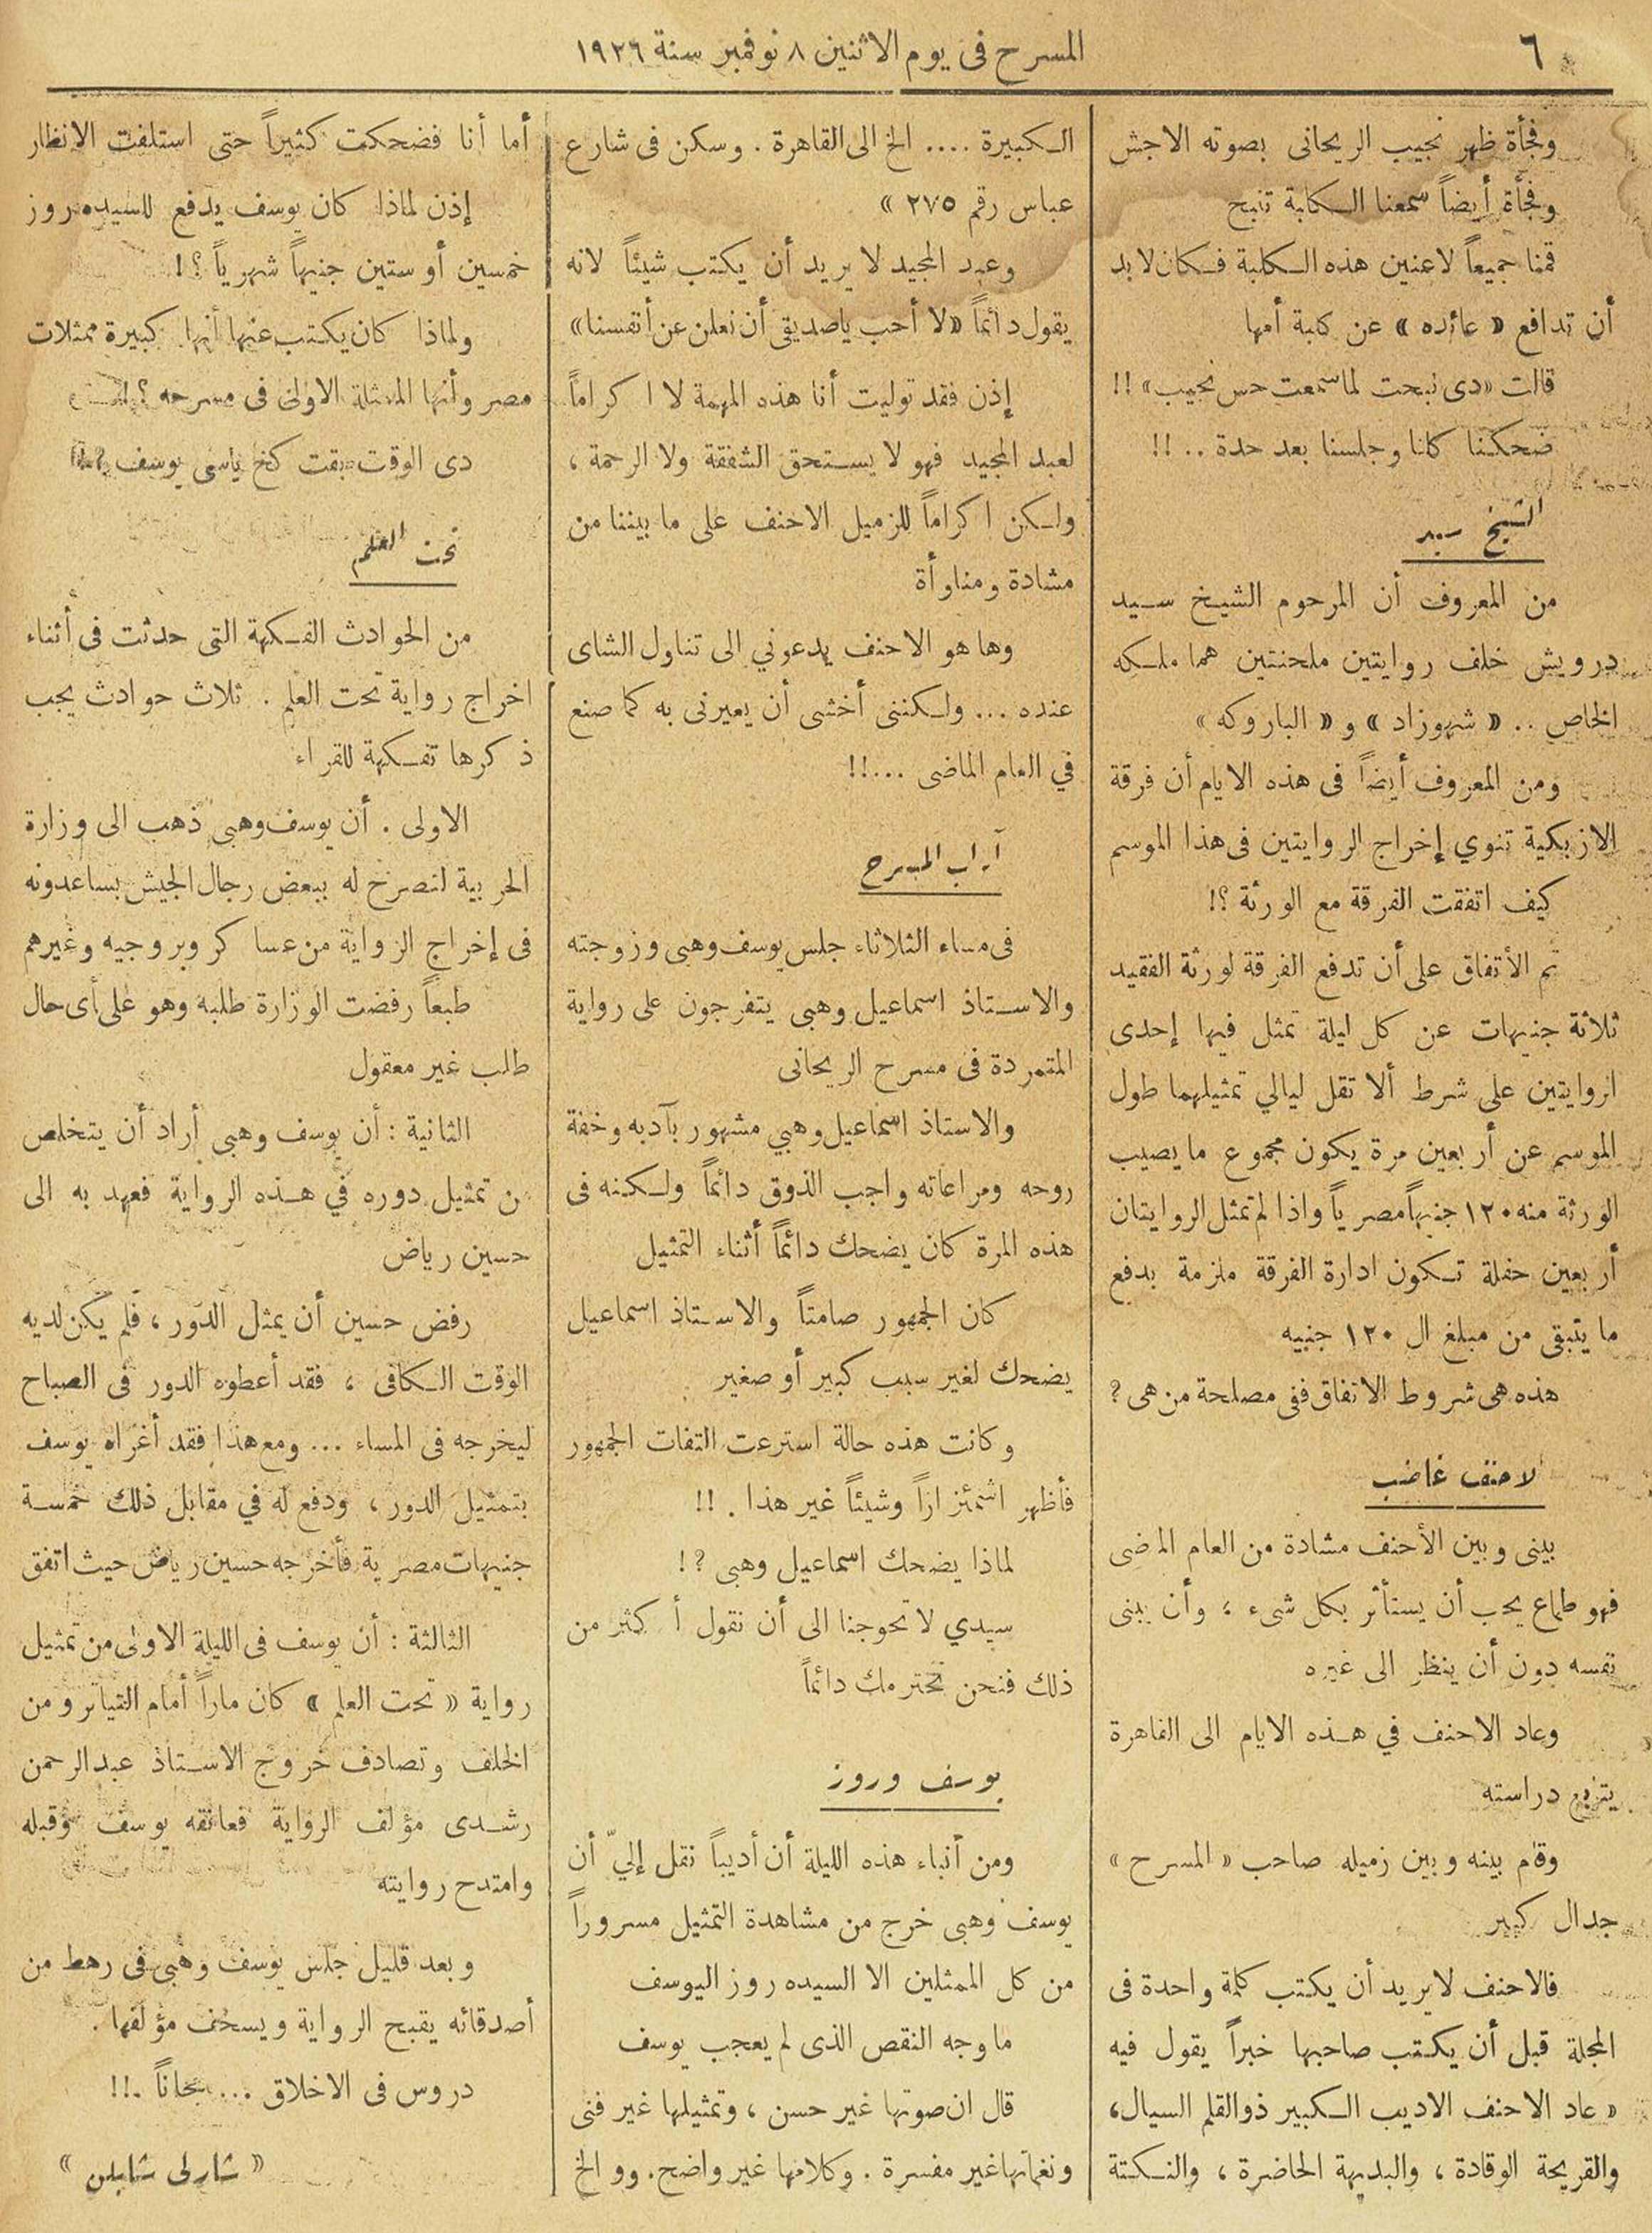 ٦
المسرح فى يوم الاثنين ٨ نوفمبر سنة ١٩٢٦
وفجأة ظهر نجيب الريحانى بصوته الاجش
وفجأة أيضاً سمعنا الكلبة تنبح
قمنا جميعاً لاعنين هذه الكلبة فكان لا بد
أن تدافع « عائده » عن كلبة أمها
قالت «دى نبحت لما سمعت حس نجيب» !!
ضحكنا كلنا وجلسنا بعد حدة .. !!
الشيخ سيد
من المعروف أن المرحوم الشيخ سيد
درويش خلف روايتين ملحنتين هما ملكه
الخاص .. « شهوزاد » و « الباروكه »
ومن المعروف أيضاً فى هذه الايام أن فرقة
الازبكية تنوي إخراج الروايتين فى هذا الموسم
كيف اتفقت الفرقة مع الورثة ؟!
تم الأتفاق على أن تدفع الفرقة لورثة الفقيد
ثلاثة جنيهات عن كل ليلة تمثل فيها إحدى
الروايتين على شرط ألا تقل ليالي تمثيلهما طول
الموسم عن أربعين مرة يكون مجموع ما يصيب
الورثة منه ١٢٠ جنيهاً مصرياً واذا لم تمثل الروايتان
أربعين حفلة تكون ادارة الفرقة ملزمة بدفع
ما يتبقى من مبلغ ال ١٢٠ جنيه
هذه هى شروط الاتفاق ففى مصلحة من هى ?
لاحنف غاضب
بينى وبين الأحنف مشادة من العام الماضى
فهو طماع يحب أن يستأثر بكل شىء ، وأن يبنى
نفسه دون أن ينظر الى غيره
وعاد الاحنف في هذه الايام الى القاهرة
دراسته
وقام بينه وبين زميله صاحب « المسرح »
جدال كبير
فالاحنف لا يريد أن يكتب كلمة واحدة فى
المجلة قبل أن يكتب صاحبها خبراً يقول فيه
« عاد الاحنف الاديب الكبير ذو القلم السيال،
والقريحة الوقادة ، والبديهة الحاضرة ، والنكتة
الكبيرة .... الخ الى القاهرة . وسكن فى شارع
عباس رقم ٢٧٥ »
وعبد المجيد لا يريد أن يكتب شيئاً لانه
يقول دائماً «لا أحب ياصديقى أن نعلن عن أنفسنا»
إذن فقد توليت أنا هذه المهمة لا اكراماً
لعبد المجيد فهو لا يستحق الشفقة ولا الرحمة ،
ولكن اكراماً للزميل الاحنف على ما بيننا من
مشادة ومناوأة
وها هو الاحنف يدعوني الى تناول الشاى
عنده ... ولكننى أخشى أن يعيرنى به كما صنع
في العام الماضى ...!!
آداب المسرح
فى مساء الثلاثاء جلس يوسف وهبى وزوجته
والاستاذ اسماعيل وهبى يتفرجون على رواية
المتمردة فى مسرح الريحانى
والاستاذ اسماعيل وهبي مشهور بآدبه وخفة
روحه ومراعاته واجب الذوق دائماً ولكنه فى
هذه المرة كان يضحك دائماً أثناء التمثيل
كان الجمهور صامتاً والاستاذ اسماعيل
يضحك لغير سبب كبير أو صغير
وكانت هذه حالة استرعت التفات الجمهور
فأظهر اشمئزازاً وشيئاً غير هذا . !!
لماذا يضحك اسماعيل وهبى ?!
سيدي لا تحوجنا الى أن نقول أكثر من
ذلك فنحن نحترمك دائماً
يوسف وروز
ومن أنباء هذه الليلة أن أديباً نقل إليّ أن
يوسف وهبى خرج من مشاهدة التمثيل مسروراً
من كل الممثلين الا السيده روز اليوسف
ماوجه النقص الذى لم يعجب يوسف
قال ان صوتها غير حسن ، وتمثيلها غير فنى
ونغماتها غير مفسرة . وكلامها غير واضح. وو الخ
أما أنا فضحكت كثيراً حتى استلفت الانظار
إذن لماذا كان يوسف يدفع للسيده روز
خمسين أو ستين جنيهاً شهرياً ؟!
ولماذا كان يكتب عنها أنها كبيرة ممثلات
مصر وأنها الممثلة الاولى فى مسرحه ؟!
دى الوقت بقت كخ ياسى يوسف ?!
تحت العلم
من الحوادث الفكهة التى حدثت فى أثناء
اخراج رواية تحت العلم . ثلاث حوادث يجب
ذكرها تفكهة للقراء
الاولى . أن يوسف وهبى ذهب الى وزارة
الحربية لتصرح له ببعض رجال الجيش بساعدونه
فى إخراج الرواية من عساكر وبروجيه وغيرهم
طبعاً رفضت الوزارة طلبه وهو على أى حال
طلب غير معقول
الثانية : أن يوسف وهبى أراد أن يتخلص
من تمثيل دوره في هذه الرواية فعهد به الى
حسين رياض
رفض حسين أن يمثل الدور ، فلم يكن لديه
الوقت الكافى ، فقد أعطوه الدور فى الصباح
ليخرجه فى المساء ... ومع هذا فقد أغراه يوسف
بتمثيل الدور ، ودفع له في مقابل ذلك خمسة
جنيهات مصرية فأخرجه حسين رياض حيث اتفق
الثالثة : أن يوسف فى الليلة الاولى من تمثيل
رواية « تحت العلم » كان ماراً أمام التياترو من
الخلف وتصادف خروج الاستاذ عبدالرحمن
رشدى مؤلف الرواية فعانقه يوسف وقبله
وامتدح روايته
وبعد قليل جلس يوسف وهبى فى رهط من
أصدقائه يقبح الرواية ويسخف مؤلفها .
دروس فى الاخلاق ... مجاناً .!!
« شارلى شابلن »